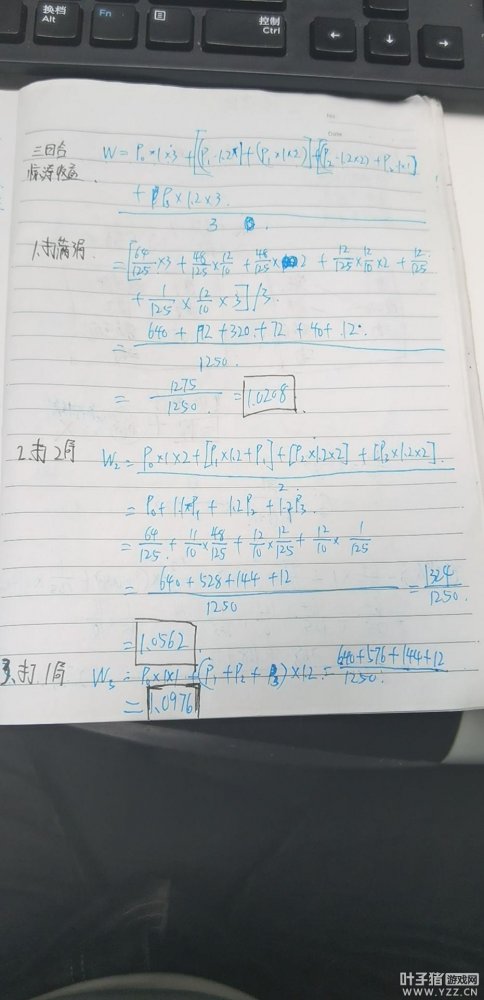 换档
Alt
Fn
控制
Ctrl
No
Date
三回合 W = P₀×1×3 + [(P₁×1.2×] + (P₁×1×2)] + [P₂×1.2×2) + P₂×1×1]
惊涛收益
+ P₃×1.2×3.
3
1.打满 = [64/125×3 + 48/125×12/10 + 48/125×2 + 12/125×12/10×2 + 12/125
+ 1/125×12/10×3]/3
= 640 + 192 + 320 + 72 + 40 + 12
1250.
= 1275/1250 = 1.0208
2.打2局 W₂ = P₀×1×2 + [P₁×1.2+P₁] + [P₂×1.2×2] + [P₂×1.2×2]
2.
= P₀ + 1.1×P₁ + 1.2P₂ + 1.2P₃.
= 64/125 + 11/10×48/125 + 12/10×12/125 + 12/10×1/125
= 640 + 528 + 144 + 12 / 1250 = 1324/1250.
= 1.0562
3.打1局 W₃ = P₀×1×1 + (P₁ + P₂ + P₃)×1.2 = 640+576+144+12 / 1250.
= 1.0976
叶子猪游戏网
WWW.YZZ.CN